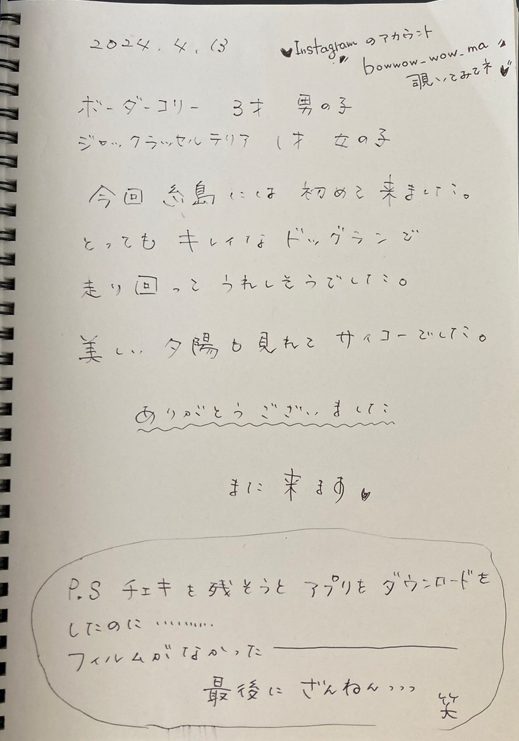 2024.4.13
♥Instagramのアカウント
bowwow_wow_ma
覗いてみてネ♥
ボーダーコリー 3才 男の子
ジャックラッセルテリア 1才 女の子
今回 糸島には 初めて来ました。
とっても キレイな ドッグランで
走り回って うれしそうでした。
美しい 夕陽も見れて サイコーでした。
ありがとうございました
また来ます♥
P.S チェキを残そうと アプリをダウンロードを
したのに…………
フィルムがなかった――――――
最後に ざんねん、、、 笑